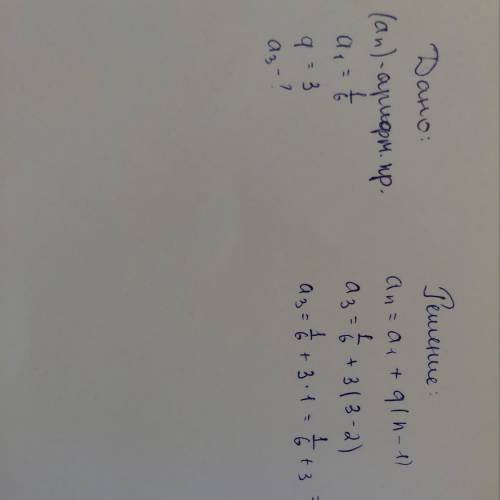 Дано:
(an) - арифм. пр.
a1 = 1/6
q = 3
a3 - ?
Решение:
an = a1 + q(n-1)
a3 = 1/6 + 3(3-2)
a3 = 1/6 + 3·1 = 1/6 + 3 =